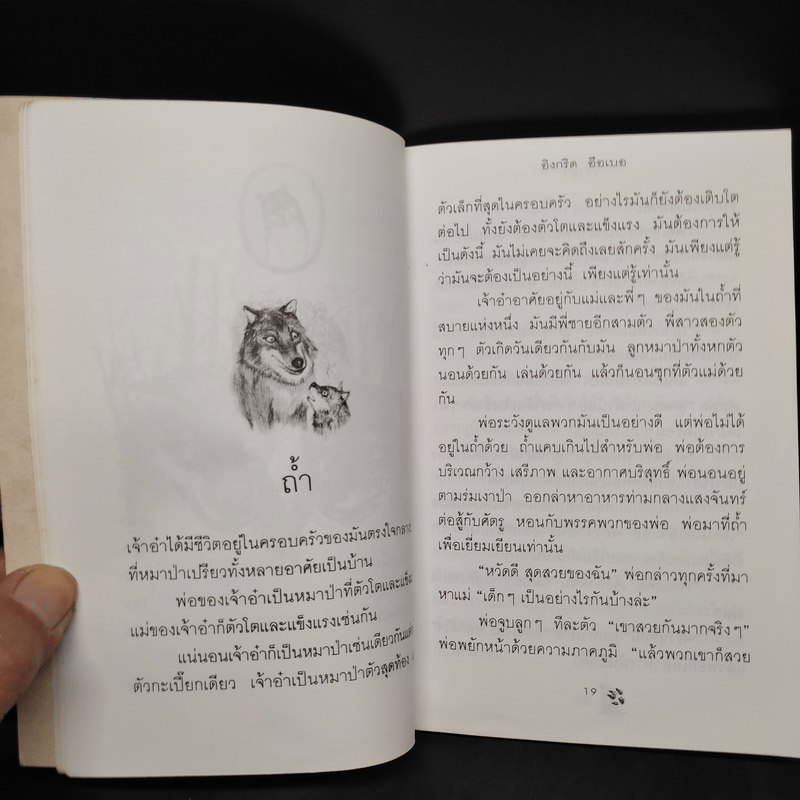 ถ้ำ
เจ้าอ๋าได้มีชีวิตอยู่ในครอบครัวของมันตรงใจกลาง
ที่หมาป่าเปรียวทั้งหลายอาศัยเป็นบ้าน
พ่อของเจ้าอ๋าเป็นหมาป่าที่ตัวโตและแข็งแ
แม่ของเจ้าอ๋าก็ตัวโตและแข็งแรงเช่นกัน
แน่นอนเจ้าอ๋าก็เป็นหมาป่าเช่นเดียวกันแต่
ตัวกะเปี๊ยกเดียว เจ้าอ๋าเป็นหมาป่าตัวสุดท้อง
อิงกริด อือเบอ
ตัวเล็กที่สุดในครอบครัว อย่างไรมันก็ยังต้องเติบโต
ต่อไป ทั้งยังต้องตัวโตและแข็งแรง มันต้องการให้
เป็นดังนี้ มันไม่เคยจะคิดถึงเลยสักครั้ง มันเพียงแต่รู้
ว่ามันจะต้องเป็นอย่างนี้ เพียงแต่รู้เท่านั้น
เจ้าอ๋าอาศัยอยู่กับแม่และพี่ๆ ของมันในถ้ำที่
สบายแห่งหนึ่ง มันมีพี่ชายอีกสามตัว พี่สาวสองตัว
ทุกๆ ตัวเกิดวันเดียวกันกับมัน ลูกหมาป่าทั้งหกตัว
นอนด้วยกัน เล่นด้วยกัน แล้วก็นอนซุกที่ตัวแม่ด้วย
กัน
พ่อระวังดูแลพวกมันเป็นอย่างดี แต่พ่อไม่ได้
อยู่ในถ้ำด้วย ถ้ำแคบเกินไปสำหรับพ่อ พ่อต้องการ
บริเวณกว้าง เสรีภาพ และอากาศบริสุทธิ์ พ่อนอนอยู่
ตามร่มเงาป่า ออกล่าหาอาหารท่ามกลางแสงจันทร์
ต่อสู้กับศัตรู หอนกับพรรคพวกของพ่อ พ่อมาที่ถ้ำ
เพื่อเยี่ยมเยียนเท่านั้น
“หวัดดี สุดสวยของฉัน” พ่อกล่าวทุกครั้งที่มา
หาแม่ “เด็กๆ เป็นอย่างไรกันบ้างล่ะ”
พ่อจูบลูกๆ ทีละตัว “เขาสวยกันมากจริงๆ”
พ่อพยักหน้าด้วยความภาคภูมิ “แล้วพวกเขาก็สวย
19